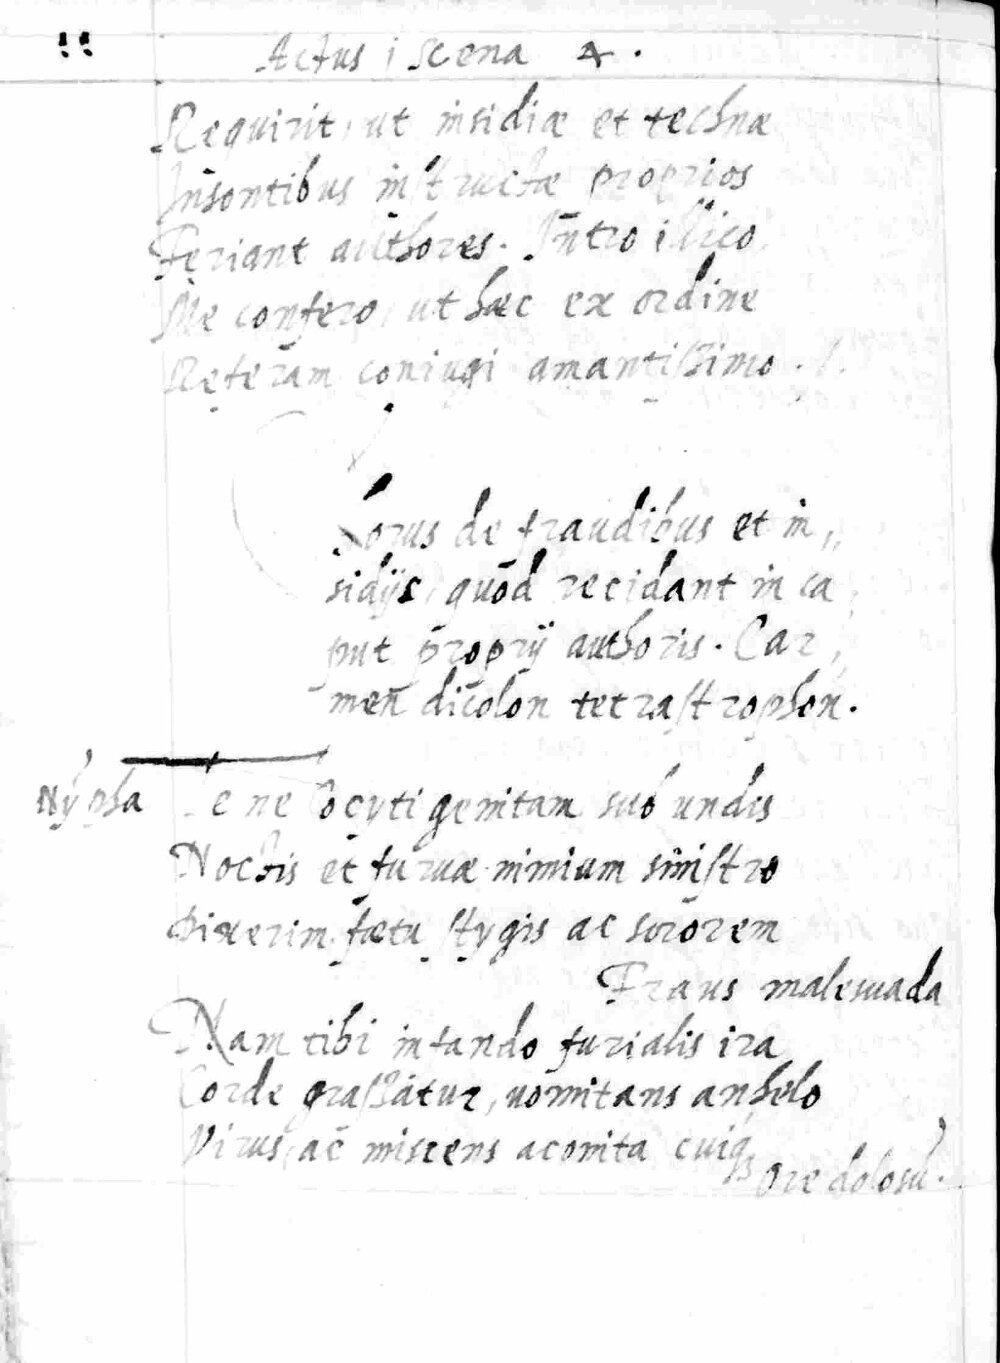 Actus i scena 4.
Requirit, ut insidiæ et technæ
Insontibus instructæ proprios
Feriant authores. Intro illico
Me confero, ut hæc ex ordine
Referam coniugi amantißimo.
Chorus de fraudibus et in„
sidijs, quòd recidant in ca„
put proprij authoris. Car„
men dicolon tetrastrophon.
Nỹpha Te ne Cocyti genitam sub undis
Noctis et furuæ nimium sinistro
Dixerim fœtu stygis ac sororem
Fraus malesuada
Nam tibi infando furialis ira
Corde graßatur, uomitans anhelo
Virus, ac miscens aconita cuiqȝ
Ore dolosũ.